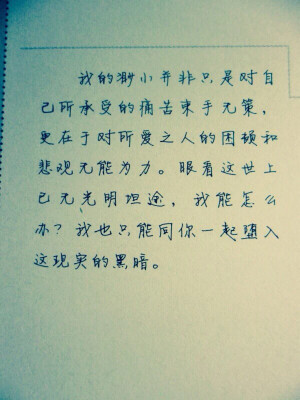 我的渺小并非只是对自
己所承受的痛苦束手无策，
更在于对所爱之人的困顿和
悲观无能为力。眼看这世上
已无光明坦途，我能怎么
办？我也只能同你一起堕入
这现实的黑暗。